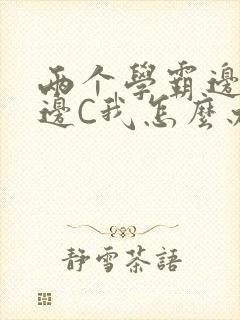 兩个學霸邊
邊C我怎麼
靜雪茶語